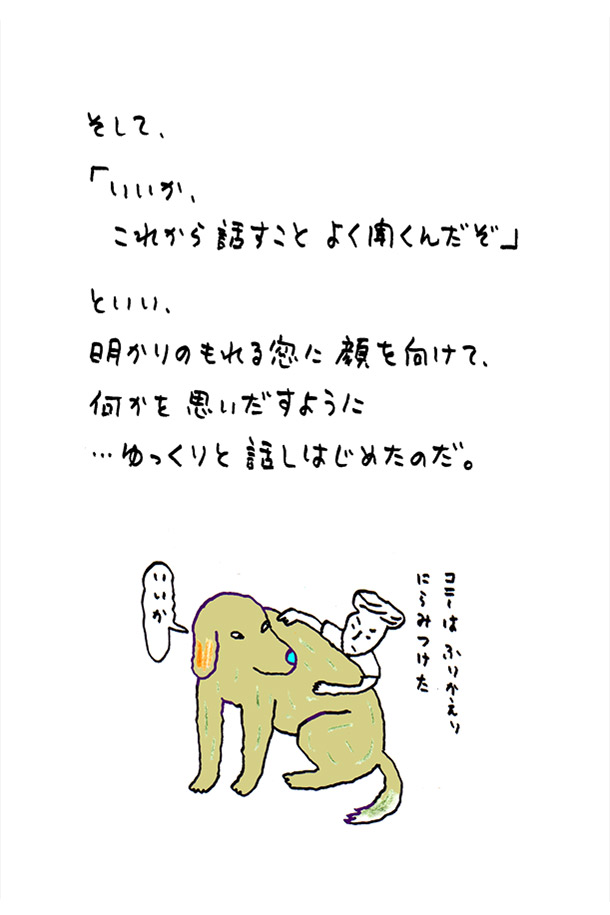 そして、
「いいか、
これから 話すこと よく聞くんだぞ」
といい、
明かりのもれる窓に 顔を向けて、
何かを 思いだすように
…ゆっくりと 話しはじめたのだ。
いいか
コニーは ふりかえり
にらみつけた